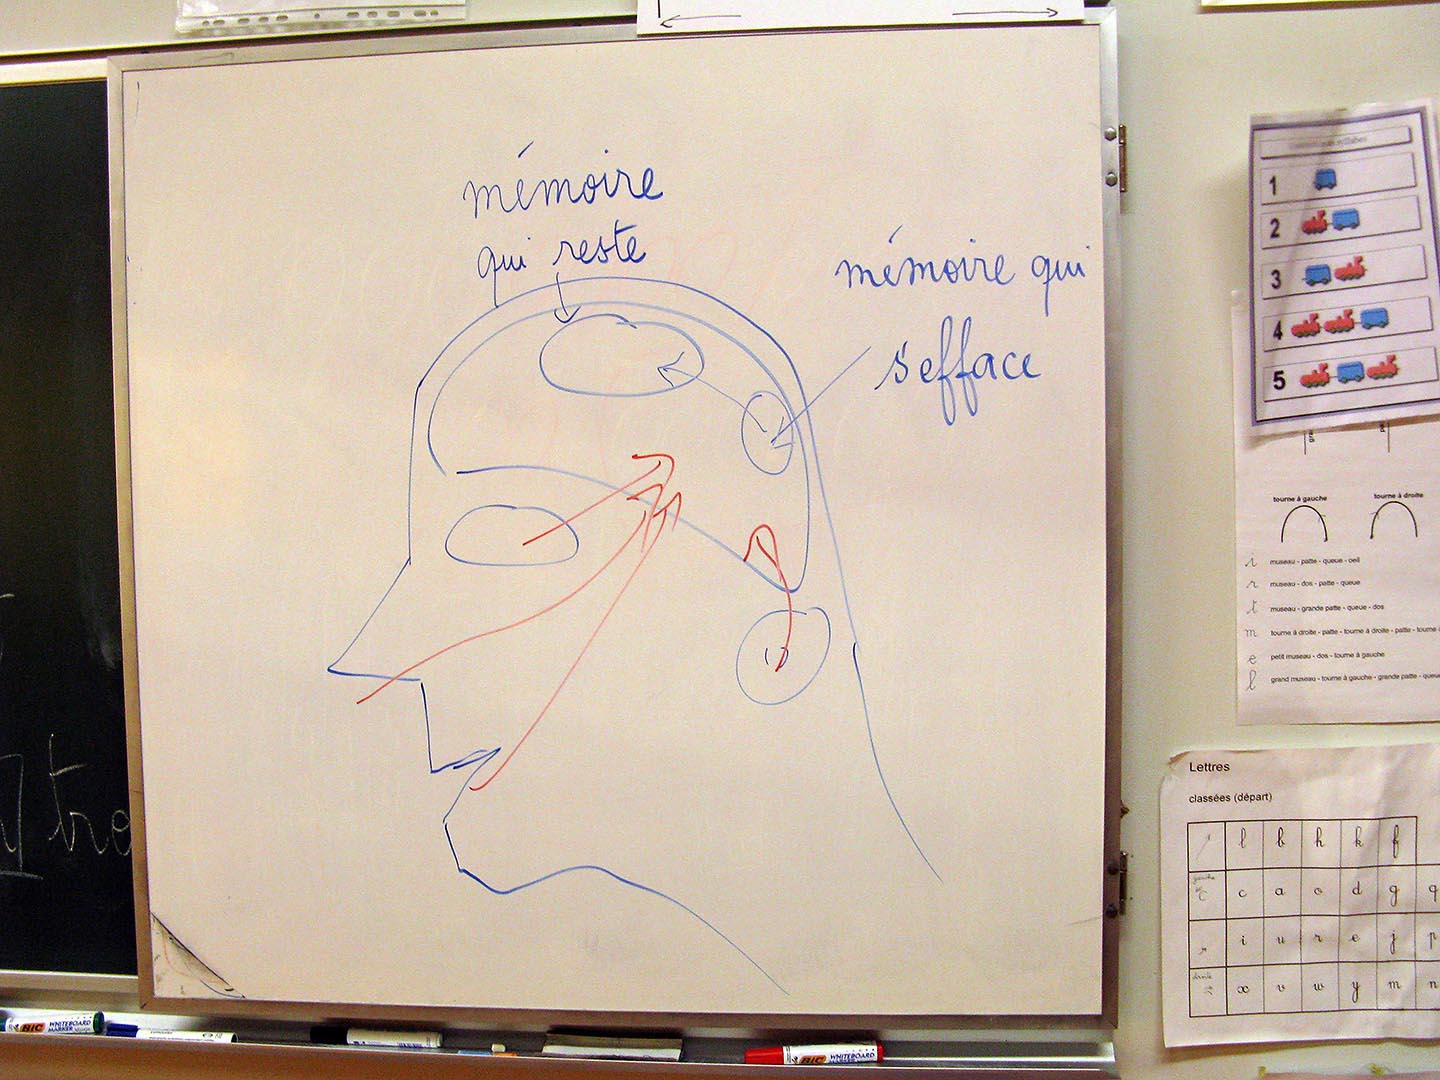 mémoire
qui reste
mémoire qui
s'efface
1
2
3
4
5
tourne à gauche
tourne à droite
i museau - patte - queue - oeil
r museau - dos - patte - queue
t museau - grande patte - queue - dos
m tourne à droite - patte - tourne à droite - patte - tourne à
e petit museau - dos - tourne à gauche
l grand museau - tourne à gauche - grande patte - queue
Lettres
classées (départ)
l b h k f
c a o d g q
i u r e j p
droite
x v w y m n
BIC WHITEBOARD MARKER
BIC WHITEBOARD MARKER